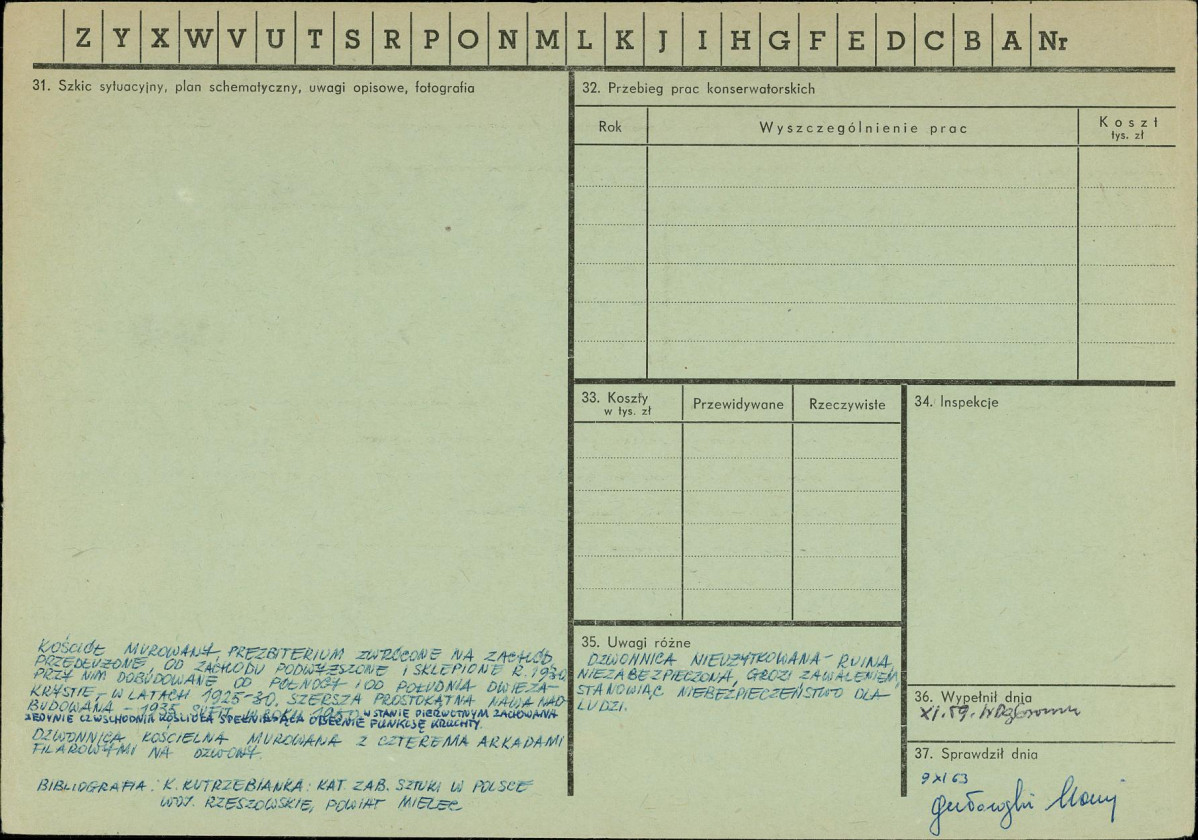 Z Y X W V U T S R P O N M L K J I H G F E D C B A Nr
31. Szkic sytuacyjny, plan schematyczny, uwagi opisowe, fotografia
KOŚCIÓŁ MUROWANY PREZBITERIUM ZWRÓCONE NA ZACHÓD
PRZEDŁUŻONE OD ZACHODU PODWYŻSZONE I SKLEPIONE R. 1930
PRZY NIM DOBUDOWANE OD PÓŁNOCY I OD POŁUDNIA DWIE ZA-
KRYSTIE, W LATACH 1925-30. SZERSZA PROSTOKĄTNA NAWA NAD
BUDOWANA - 1935 SUFIT W STANIE PIERWOTNYM ZACHOWANA
JEDYNIE CZ. WSCHODNIA KOŚCIOŁA SPEŁNIAJĄCA OBECNIE FUNKCJĘ KRUCHTY.
DZWONNICA KOŚCIELNA MUROWANA Z CZTEREMA ARKADAMI
FILAROWYMI NA DZWONY.
BIBLIOGRAFIA: K. KUTRZEBIANKA: KAT. ZAB. SZTUKI W POLSCE
WOJ. RZESZOWSKIE, POWIAT MIELEC
32. Przebieg prac konserwatorskich
Rok Wyszczególnienie prac Koszt
tys. zł
33. Koszty
w tys. zł
Przewidywane Rzeczywiste
34. Inspekcje
35. Uwagi różne
DZWONNICA NIEUŻYTKOWANA - RUINA,
NIEZABEZPIECZONA, GROZI ZAWALENIEM,
STANOWIĄC NIEBEZPIECZEŃSTWO DLA
LUDZI.
36. Wypełnił dnia
XI.59.
37. Sprawdził dnia
9 XI 63